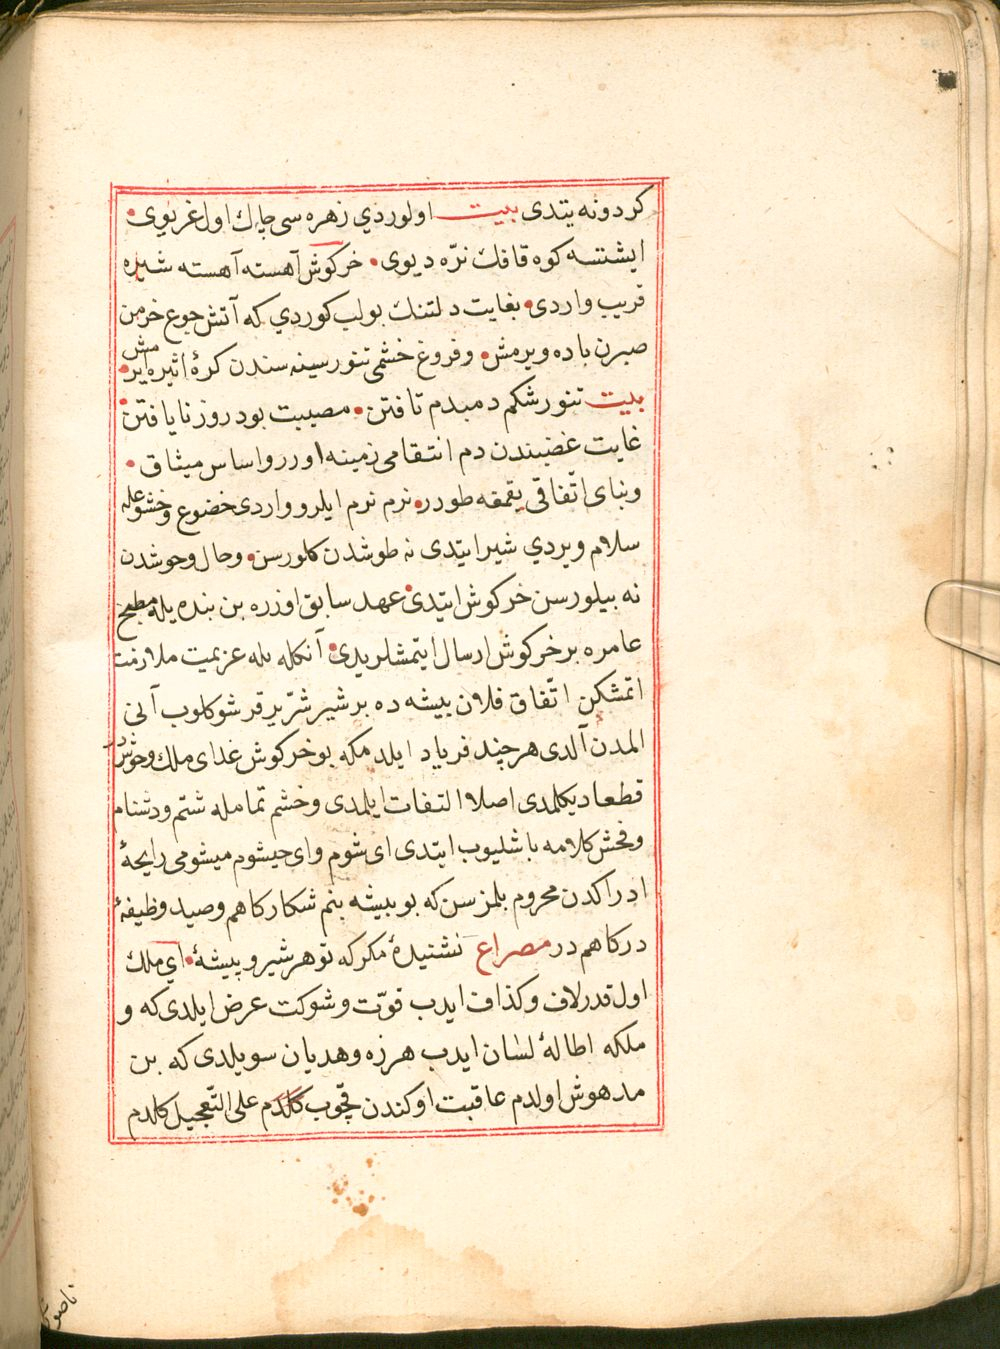 كردونه يتدى بيت اولوردي زهره سى چاك اول غريوى
ايشتسه كوه قافك نرّه ديوى خركوش آهسته آهسته شيره
قريب واردى بغايت دلتنك بولب كوردي كه آتش جوع خرمن
صبرن باده ويرمش وفروغ خشمى تنور سينه سندن كرهٔ اثيره ايرمش
بيت تنور شكم دمبدم تافتن مصيبت بود روز نايافتن
غايت غضبندن دم انتقامى زمينه اورر واساس ميثاق
وبناى اتّفاقى يقمقه طورر نرم نرم ايلرو واردى خضوع وخشوعله
سلام ويردي شير ايتدى نه طوشدن كلورسن وحال وحوشدن
نه بيلورسن خركوش ايتدى عهد سابق اوزره بن بنده يله مطبخ
عامره بر خركوش ارسال ايتمشلريدى آنكله بله عزيمت ملازمت
اتمشكن اتّفاق فلان بيشه ده بر شير شرّير قرشو كلوب آنى
المدن آلدى هرچند فرياد ايلدمكه بو خركوش غداى ملك وحوشدر
قطعا ديكلمدى اصلا التفات ايلمدى وخشم تمامله شتم ودشنام
وفحش كلامه باشليوب ايتدى اى شوم واى ميشوم ميشومى رايحهٔ
ادراكدن محروم بلمزسن كه بو بيشه بنم شكاركاهم وصيد وظيفهٔ
دركاهم در مصراع نشنيدهٔ مكر كه تو هر شير وبيشهٔ اي ملك
اول قدر لاف وكذاف ايدب قوّت وشوكت عرض ايلدى كه و
ملكه اطالهٔ لسان ايدب هرزه وهديان سويلدى كه بن
مدهوش اولدم عاقبت اوكندن قچوب كلدم على التّعجيل كلدم